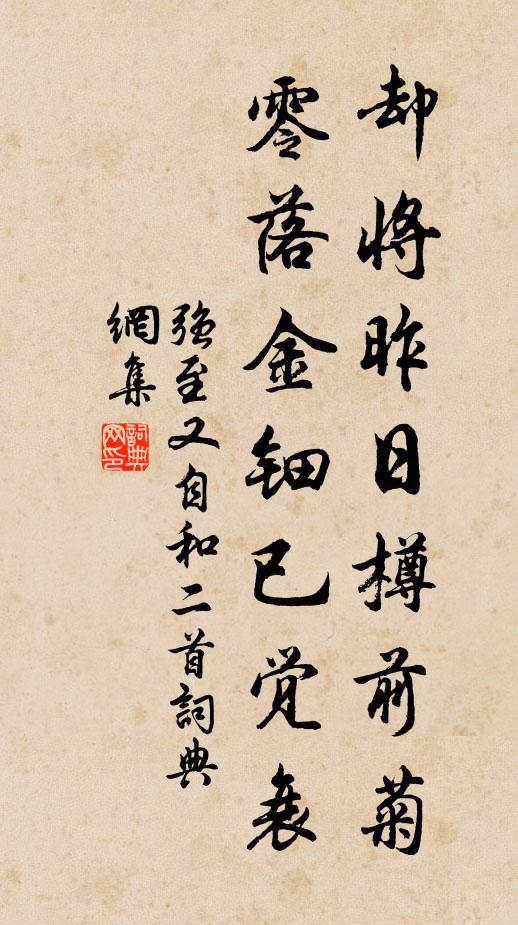 却将昨日樽前菊
零落金钿已觉衰
强至又自和二首詞典
網集
詞典
网印